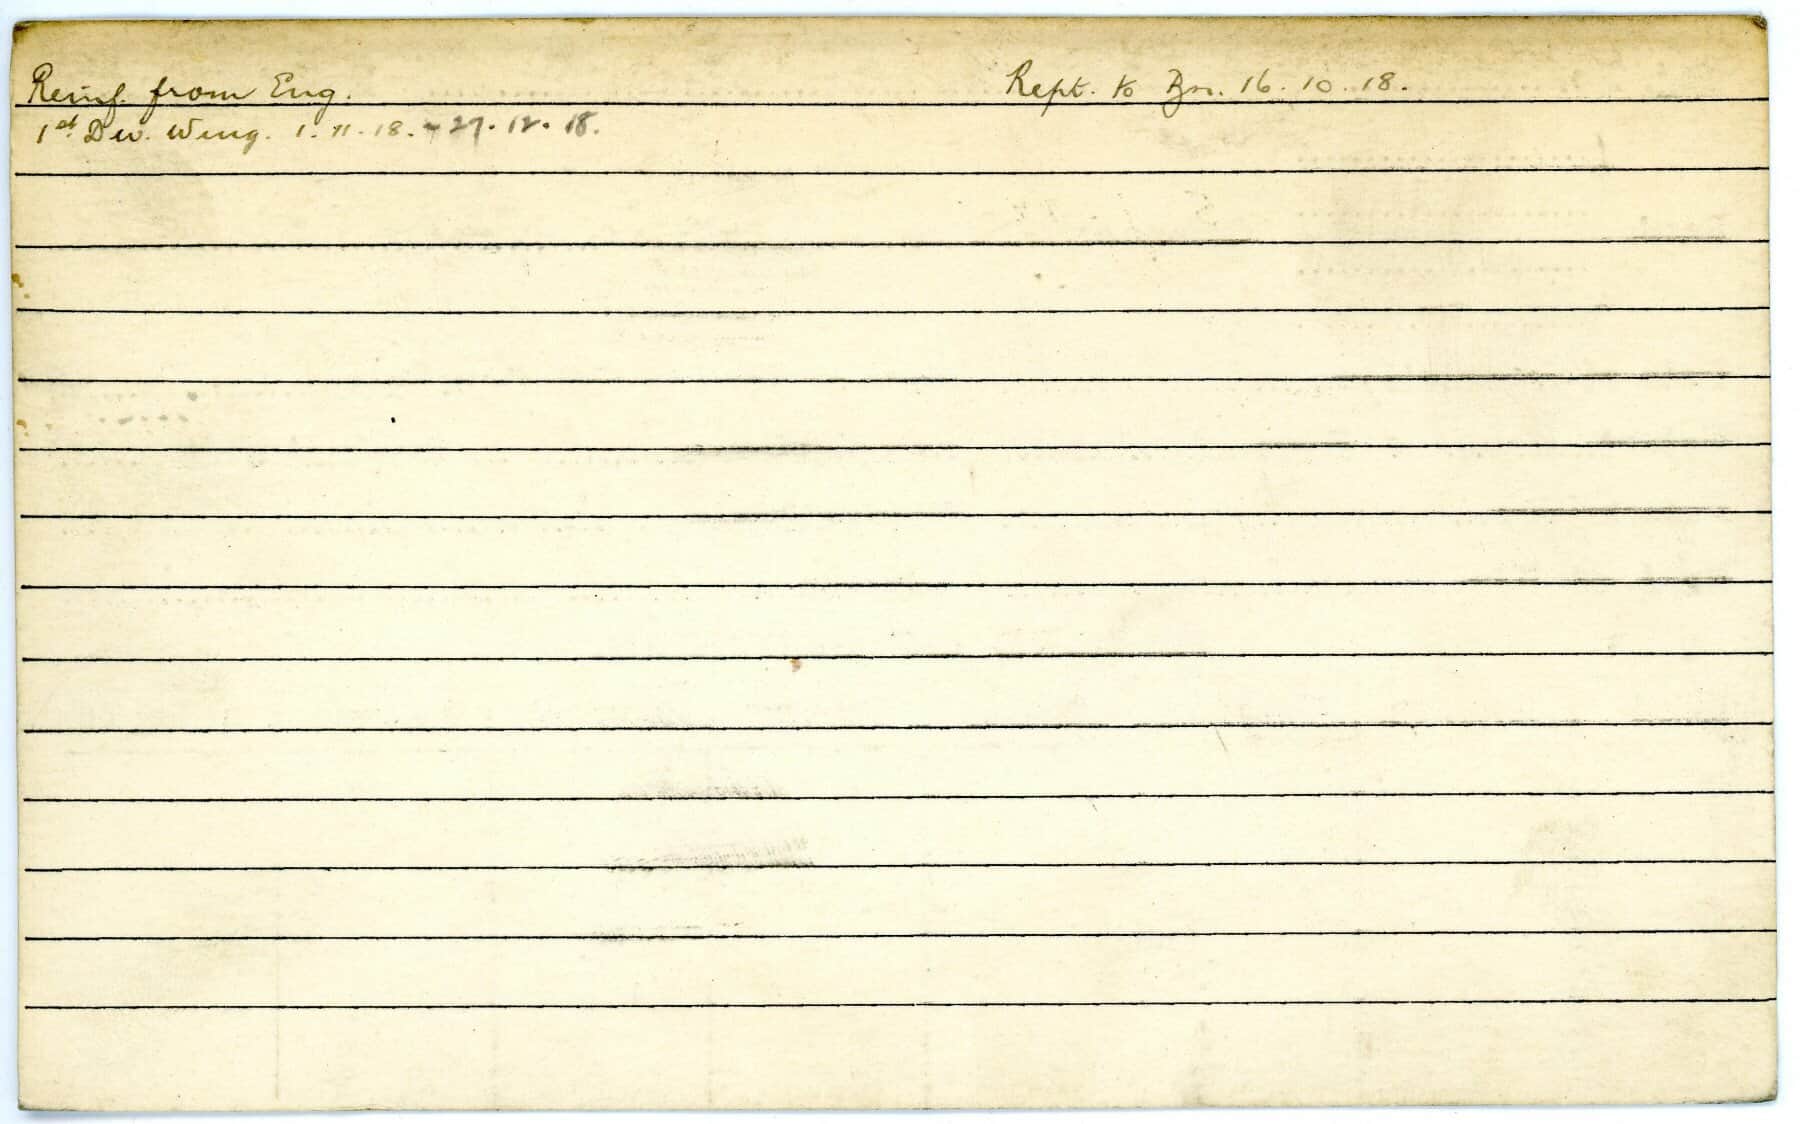 Reinf. from Eng. Rept. to Bn. 16.10.18.
1st Div. Wing. 1.11.18. - 27.12.18.